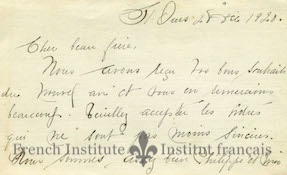 St Ours 28 déc 1920.
Cher beau frère,
Nous avons reçu vos bons souhaits
du Nouvel an et vous en remercions
beaucoup. Veuillez accepter les nôtres
qui ne sont pas moins sincères.
French Institute Institut français
Nous sommes bien Philippe et moi